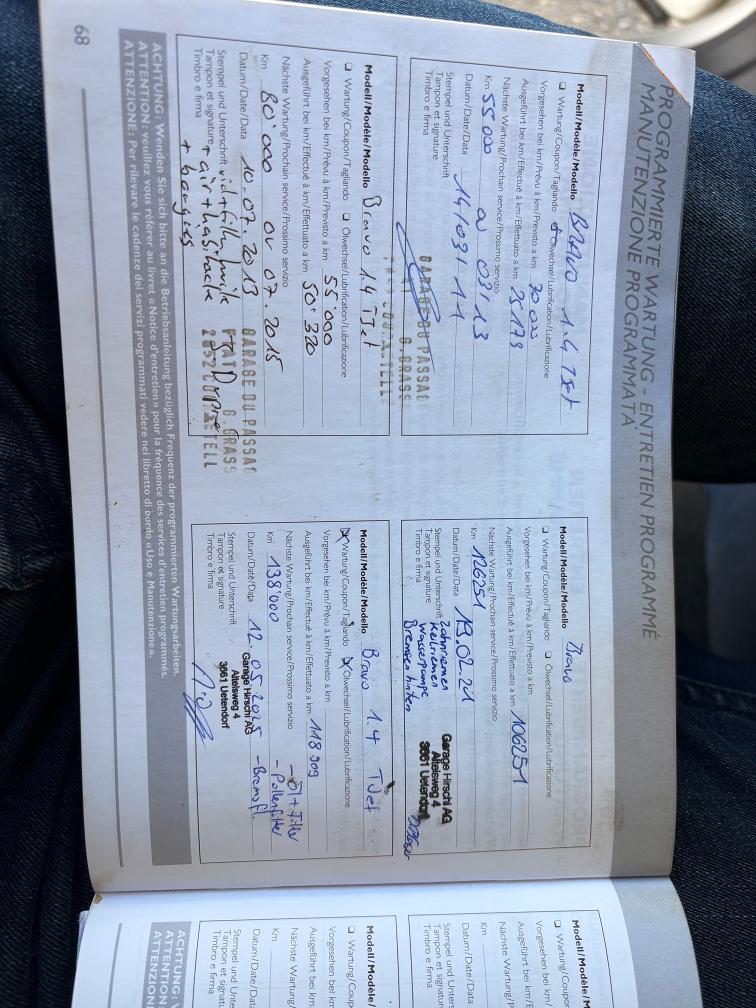 PROGRAMMIERTE WARTUNG - ENTRETIEN PROGRAMMÉ
MANUTENZIONE PROGRAMMATA
Modell/Modèle/Modello BRAVO 1.4 TJet
❑ Wartung/Coupon/Tagliando ❑ Ölwechsel/Lubrification/Lubrificazione
Vorgesehen bei km/Prévu à km/Previsto a km 30 000
Ausgeführt bei km/Effectué à km/Effettuato a km 25 173
Nächste Wartung/Prochain service/Prossimo servizio
Km 55 000 ou 03/13
Datum/Date/Data 14/03/11
Stempel und Unterschrift
Tampon et signature
Timbro e firma
GARAGE DU PASSAG
G. GRASS
Modell/Modèle/Modello Bravo 1.4 TJet
❑ Wartung/Coupon/Tagliando ❑ Ölwechsel/Lubrification/Lubrificazione
Vorgesehen bei km/Prévu à km/Previsto a km 55 000
Ausgeführt bei km/Effectué à km/Effettuato a km 50' 320
Nächste Wartung/Prochain service/Prossimo servizio
Km 80'000 ou 07. 2015
Datum/Date/Data 10.07.2013
Stempel und Unterschrift
Tampon et signature
Timbro e firma
+ bougies
GARAGE DU PASSAG
FIAT G. GRASS
Modell/Modèle/Modello Bravo
❑ Wartung/Coupon/Tagliando ❑ Ölwechsel/Lubrification/Lubrificazione
Vorgesehen bei km/Prévu à km/Previsto a km
Ausgeführt bei km/Effectué à km/Effettuato a km 106251
Nächste Wartung/Prochain service/Prossimo servizio
Km 126251
Datum/Date/Data 19.02.21
Stempel und Unterschrift Zahnriemen
Tampon et signature Keilriemen
Timbro e firma Wasserpumpe
Bremsen hinten
Garage Hirschi AG
Altelsweg 4
3661 Uetendorf
Modell/Modèle/Modello Bravo 1.4 TJet
Wartung/Coupon/Tagliando Ölwechsel/Lubrification/Lubrificazione
Vorgesehen bei km/Prévu à km/Previsto a km
Ausgeführt bei km/Effectué à km/Effettuato a km 118 909
Nächste Wartung/Prochain service/Prossimo servizio
Km 138'000
Datum/Date/Data 12.05.2025
- Öl + Filter
- Pollenfilter
- Bremsfl.
Stempel und Unterschrift
Tampon et signature
Timbro e firma
Garage Hirschi AG
Altelsweg 4
3661 Uetendorf
ACHTUNG: Wenden Sie sich bitte an die Betriebsanleitung bezüglich Frequenz der programmierten Wartungsarbeiten.
ATTENTION: veuillez vous référer au livret «Notice d'entretien» pour la fréquence des services d'entretien programmés.
ATTENZIONE: Per rilevare le cadenze dei servizi programmati vedere nel libretto di bordo «Uso e Manutenzione».
68
Modell/Modèle/
❑ Wartung/Coup
Vorgesehen bei km
Ausgeführt bei km/
Nächste Wartung/
Km
Datum/Date/Data
Stempel und Unter
Tampon et signature
Timbro e firma
Modell/Modèle/
❑ Wartung/Coup
Vorgesehen bei km
Ausgeführt bei km
Nächste Wartung
Km
Datum/Date/Dat
Stempel und Unter
Tampon et signatu
Timbro e firma
ACHTUNG: 
ATTENTION
ATTENZION